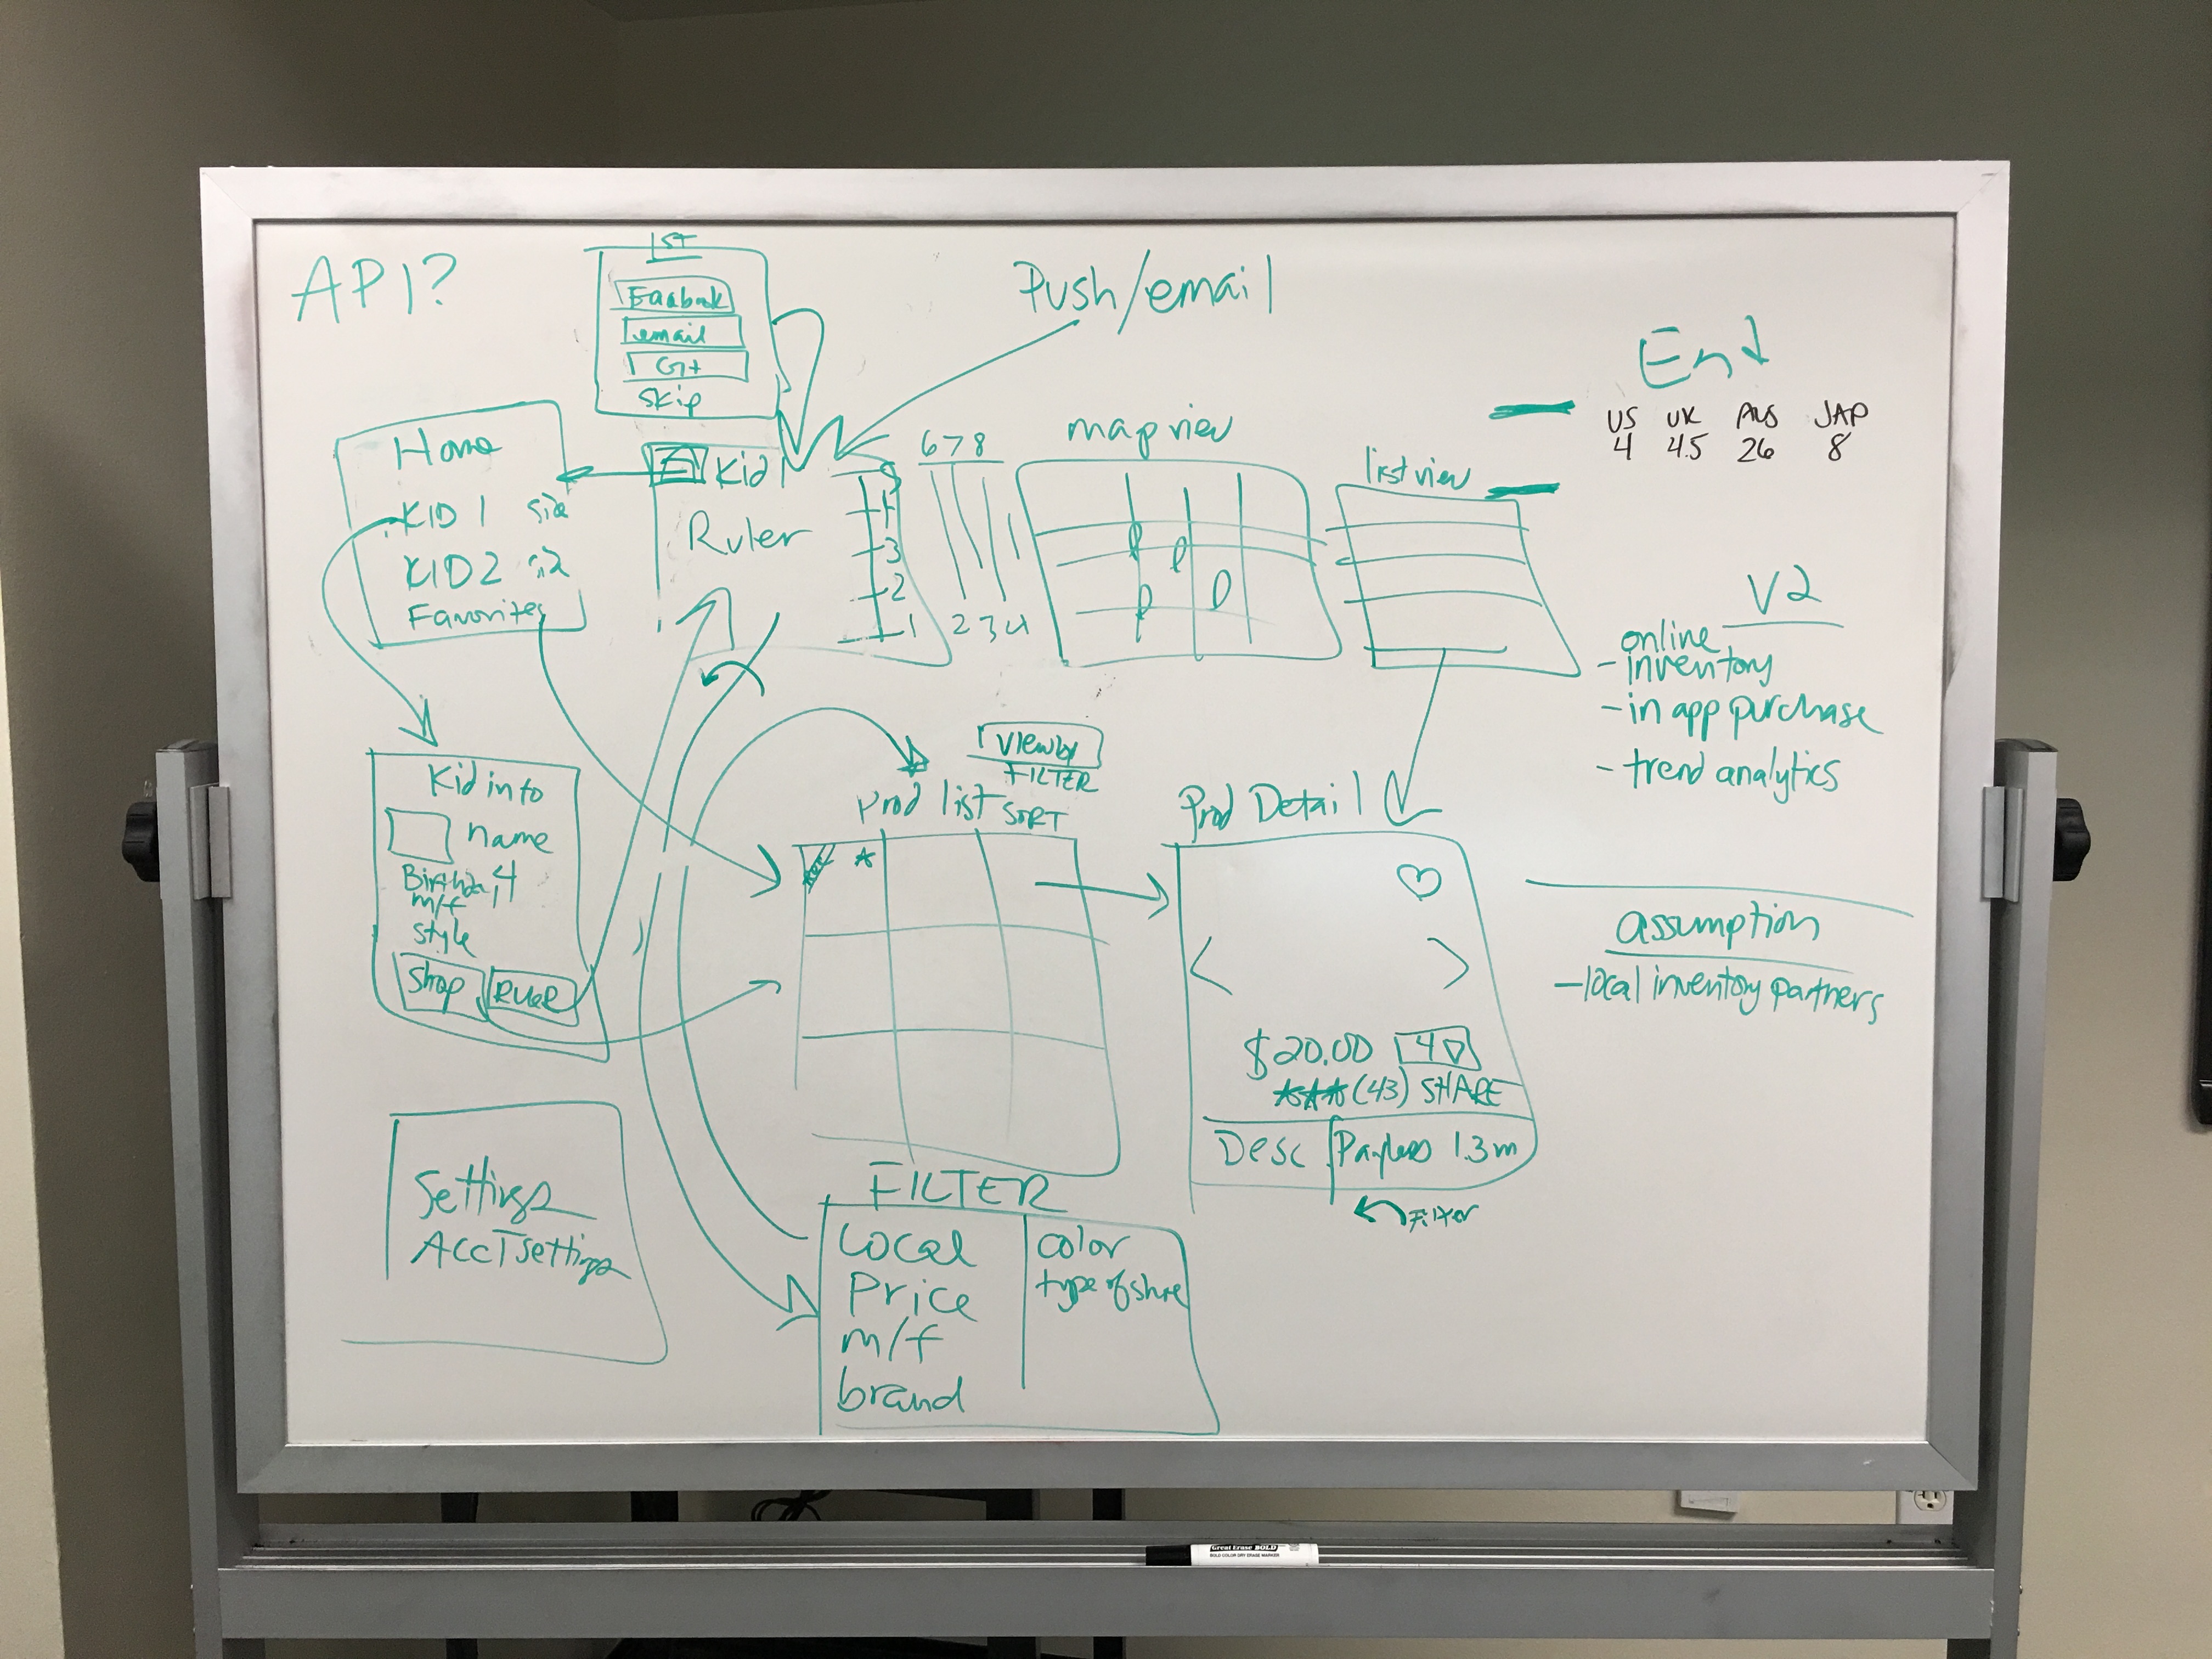 API?
1ST
Facebook
email
G+
Skip
Push/email
End
US UK AUS JAP
4 4.5 26 8
Home
KID 1 size
KID 2 size
Favorites
Kid 1
Ruler
4
3
2
1
6 7 8
2 3 4
map view
list view
V2
online
- inventory
- in app purchase
- trend analytics
Kid info
name
Birthday
m/f
style
Shop
RULER
View by
FILTER
SORT
Prod list
Prod Detail
$20.00 4
(43) SHARE
Desc Payless 1.3m
Filter
assumption
- local inventory partners
Settings
Acct settings
FILTER
Local
Price
m/f
brand
color
type of shoe
Great Erase BOLD
BOLD COLOR DRY ERASE MARKER